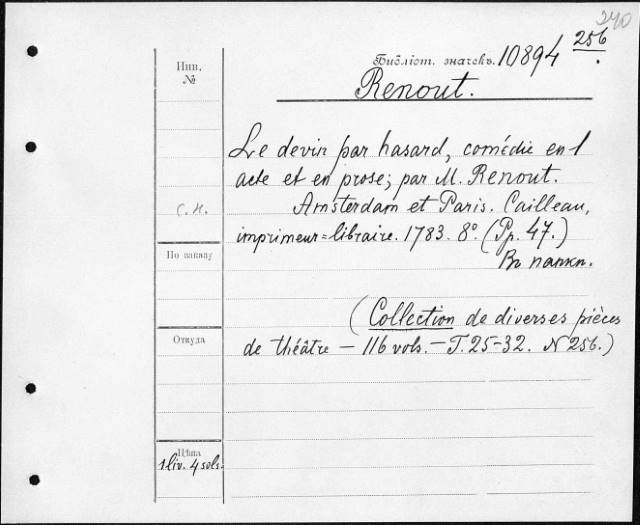 240
256
Библіот. значекъ. 10894
Инв.
№
Renout.
Le devin par hasard, comédie en 1
acte et en prose; par M. Renout.
Amsterdam et Paris. Cailleau,
С. Н.
imprimeur=libraire. 1783. 8º. (Pp. 47.)
По заказу
Въ папкѣ.
(Collection de diverses pièces
Откуда
de théâtre — 116 vols. — T. 25-32. N 256.)
Цѣна
1 liv. 4 sols.